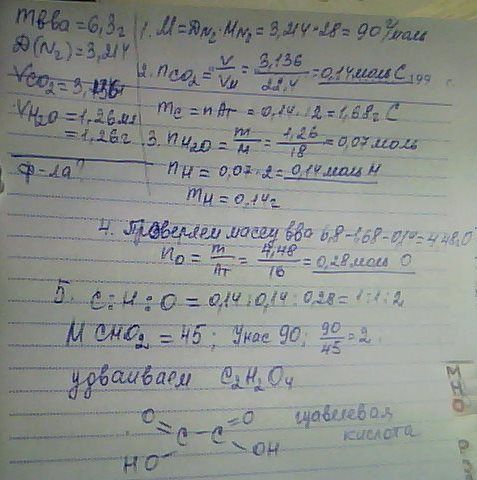 m в-ва = 6,3 г
D(N₂) = 3,214
V CO₂ = 3,136
V H₂O = 1,26 мл
= 1,26 г
ф-ла?
1. M = D N₂ · M N₂ = 3,214 · 28 = 90 г/моль
2. n CO₂ = V/Vм = 3,136/22,4 = 0,14 моль C
m C = n Ar = 0,14 · 12 = 1,68 г C
3. n H₂O = m/M = 1,26/18 = 0,07 моль
n H = 0,07 · 2 = 0,14 моль H
m H = 0,14 г
4. Проверяем массу в-ва 6,3 - 1,68 - 0,14 = 4,48 г O
n O = m/Ar = 4,48/16 = 0,28 моль O
5. C : H : O = 0,14 : 0,14 : 0,28 = 1:1:2
M CHO₂ = 45; У нас 90; 90/45 = 2
удваиваем C₂H₂O₄
O O щавелевая
C - C кислота
HO OH